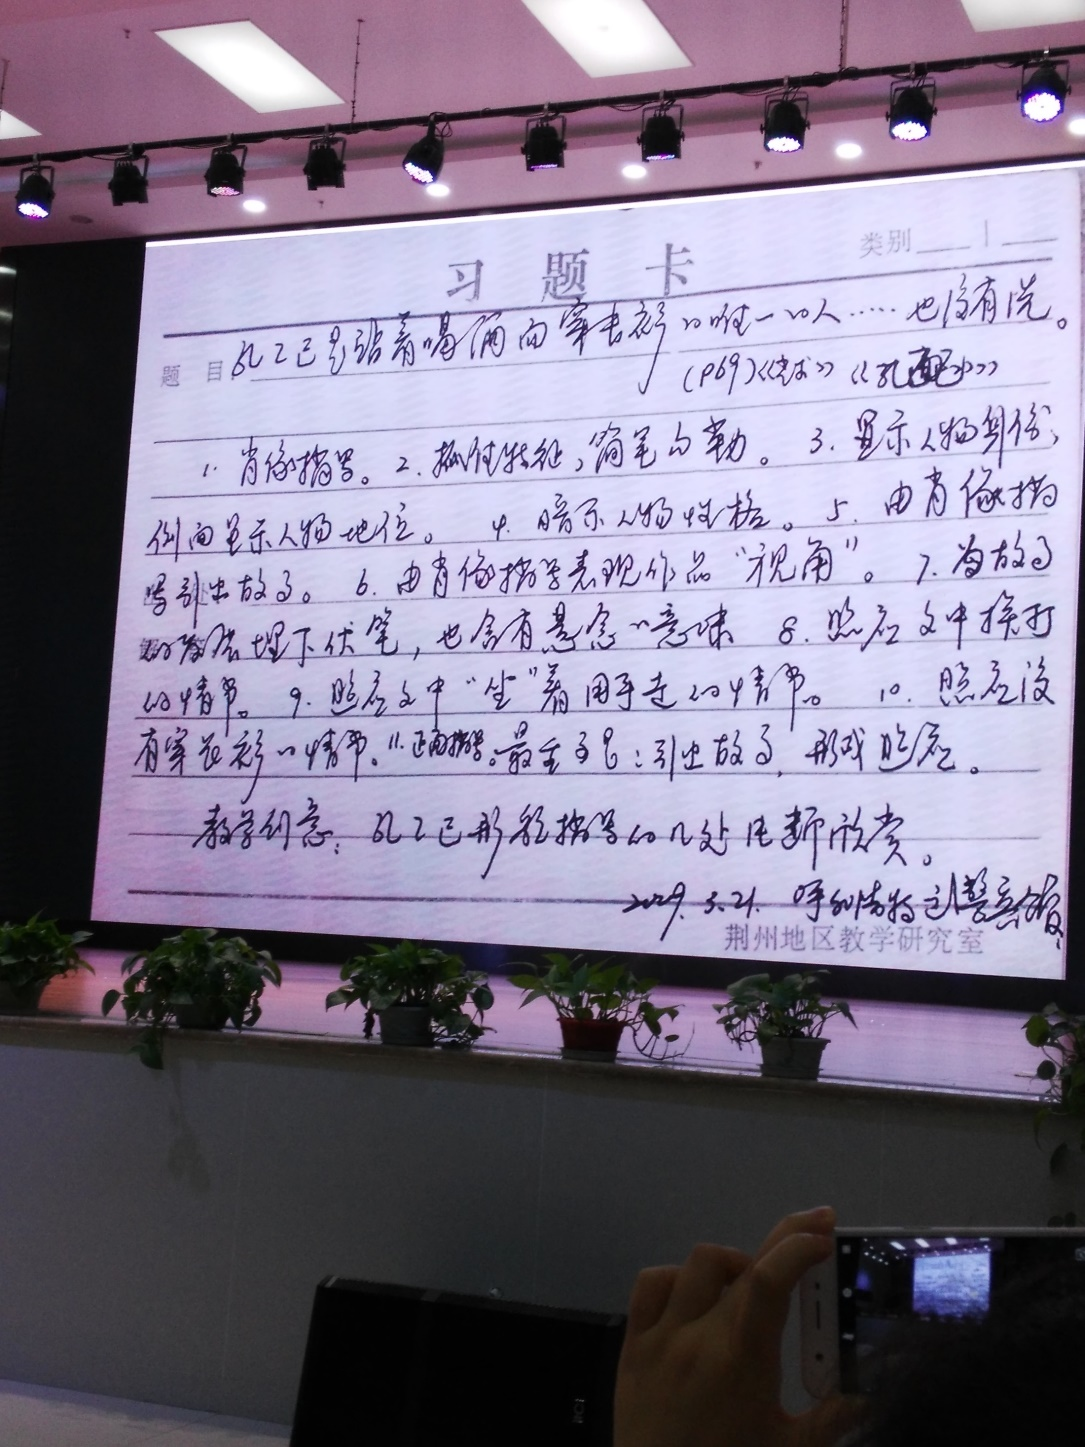 类别 1
习题卡
题目 孔乙己是站着喝酒而穿长衫的唯一的人……也没有洗。
(P69) 《孔乙己》
1. 肖像描写。2. 抓住特征,简笔勾勒。3. 显示人物身份,
侧面显示人物地位。 4. 暗示人物性格。5. 由肖像描
写引出故事。 6. 由肖像描写表现作品“视角”。 7. 为故事
的发展埋下伏笔,也含有悬念的意味 8. 照应文中挨打
的情节。 9. 照应文中“坐”着用手走的情节。 10. 照应没
有穿长衫的情节。11. 正面描写。最主要是:引出故事,形成照应。
教学创意:孔乙己形象描写的几处片断欣赏。
3.21. 呼和浩特
荆州地区教学研究室